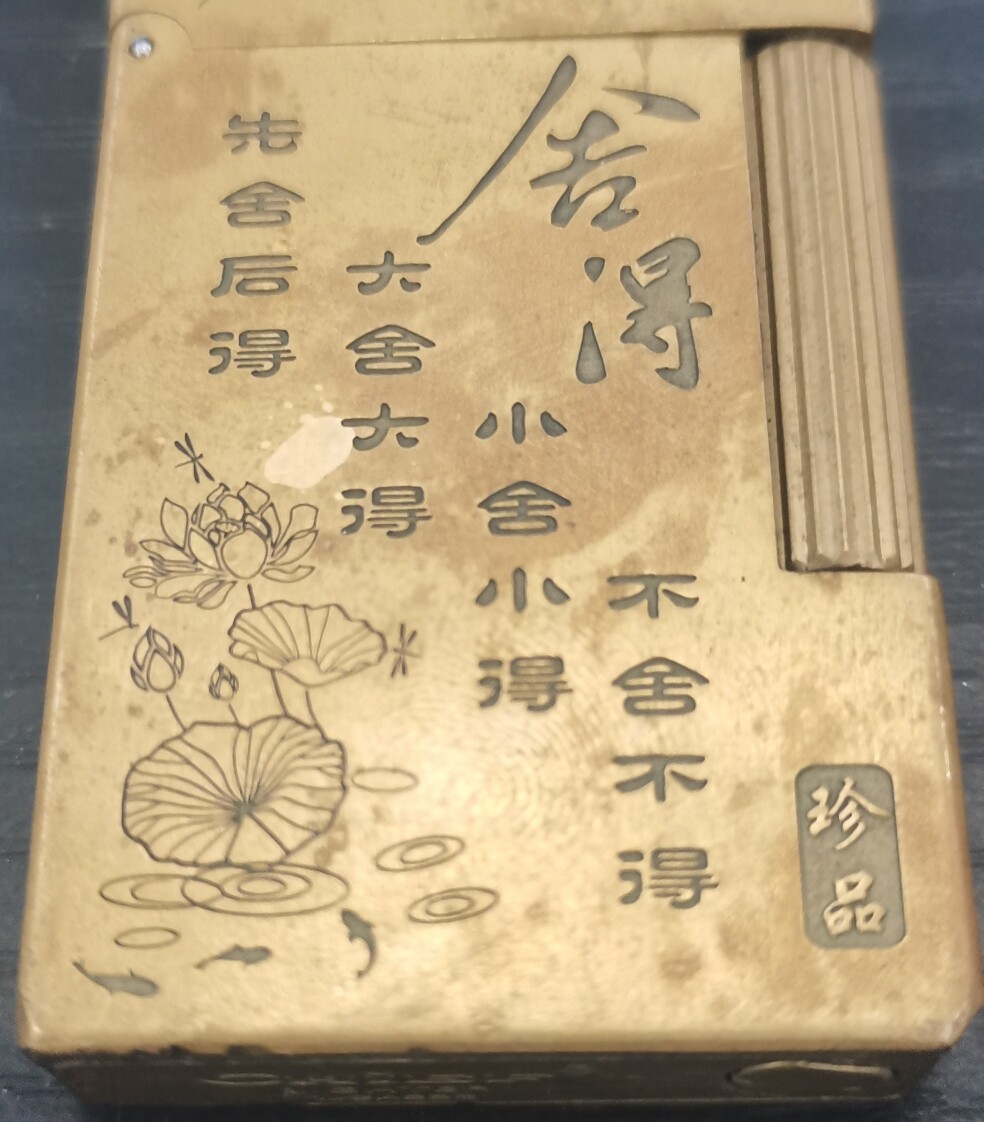 舍得
不舍不得
小舍小得
大舍大得
先舍后得
珍品